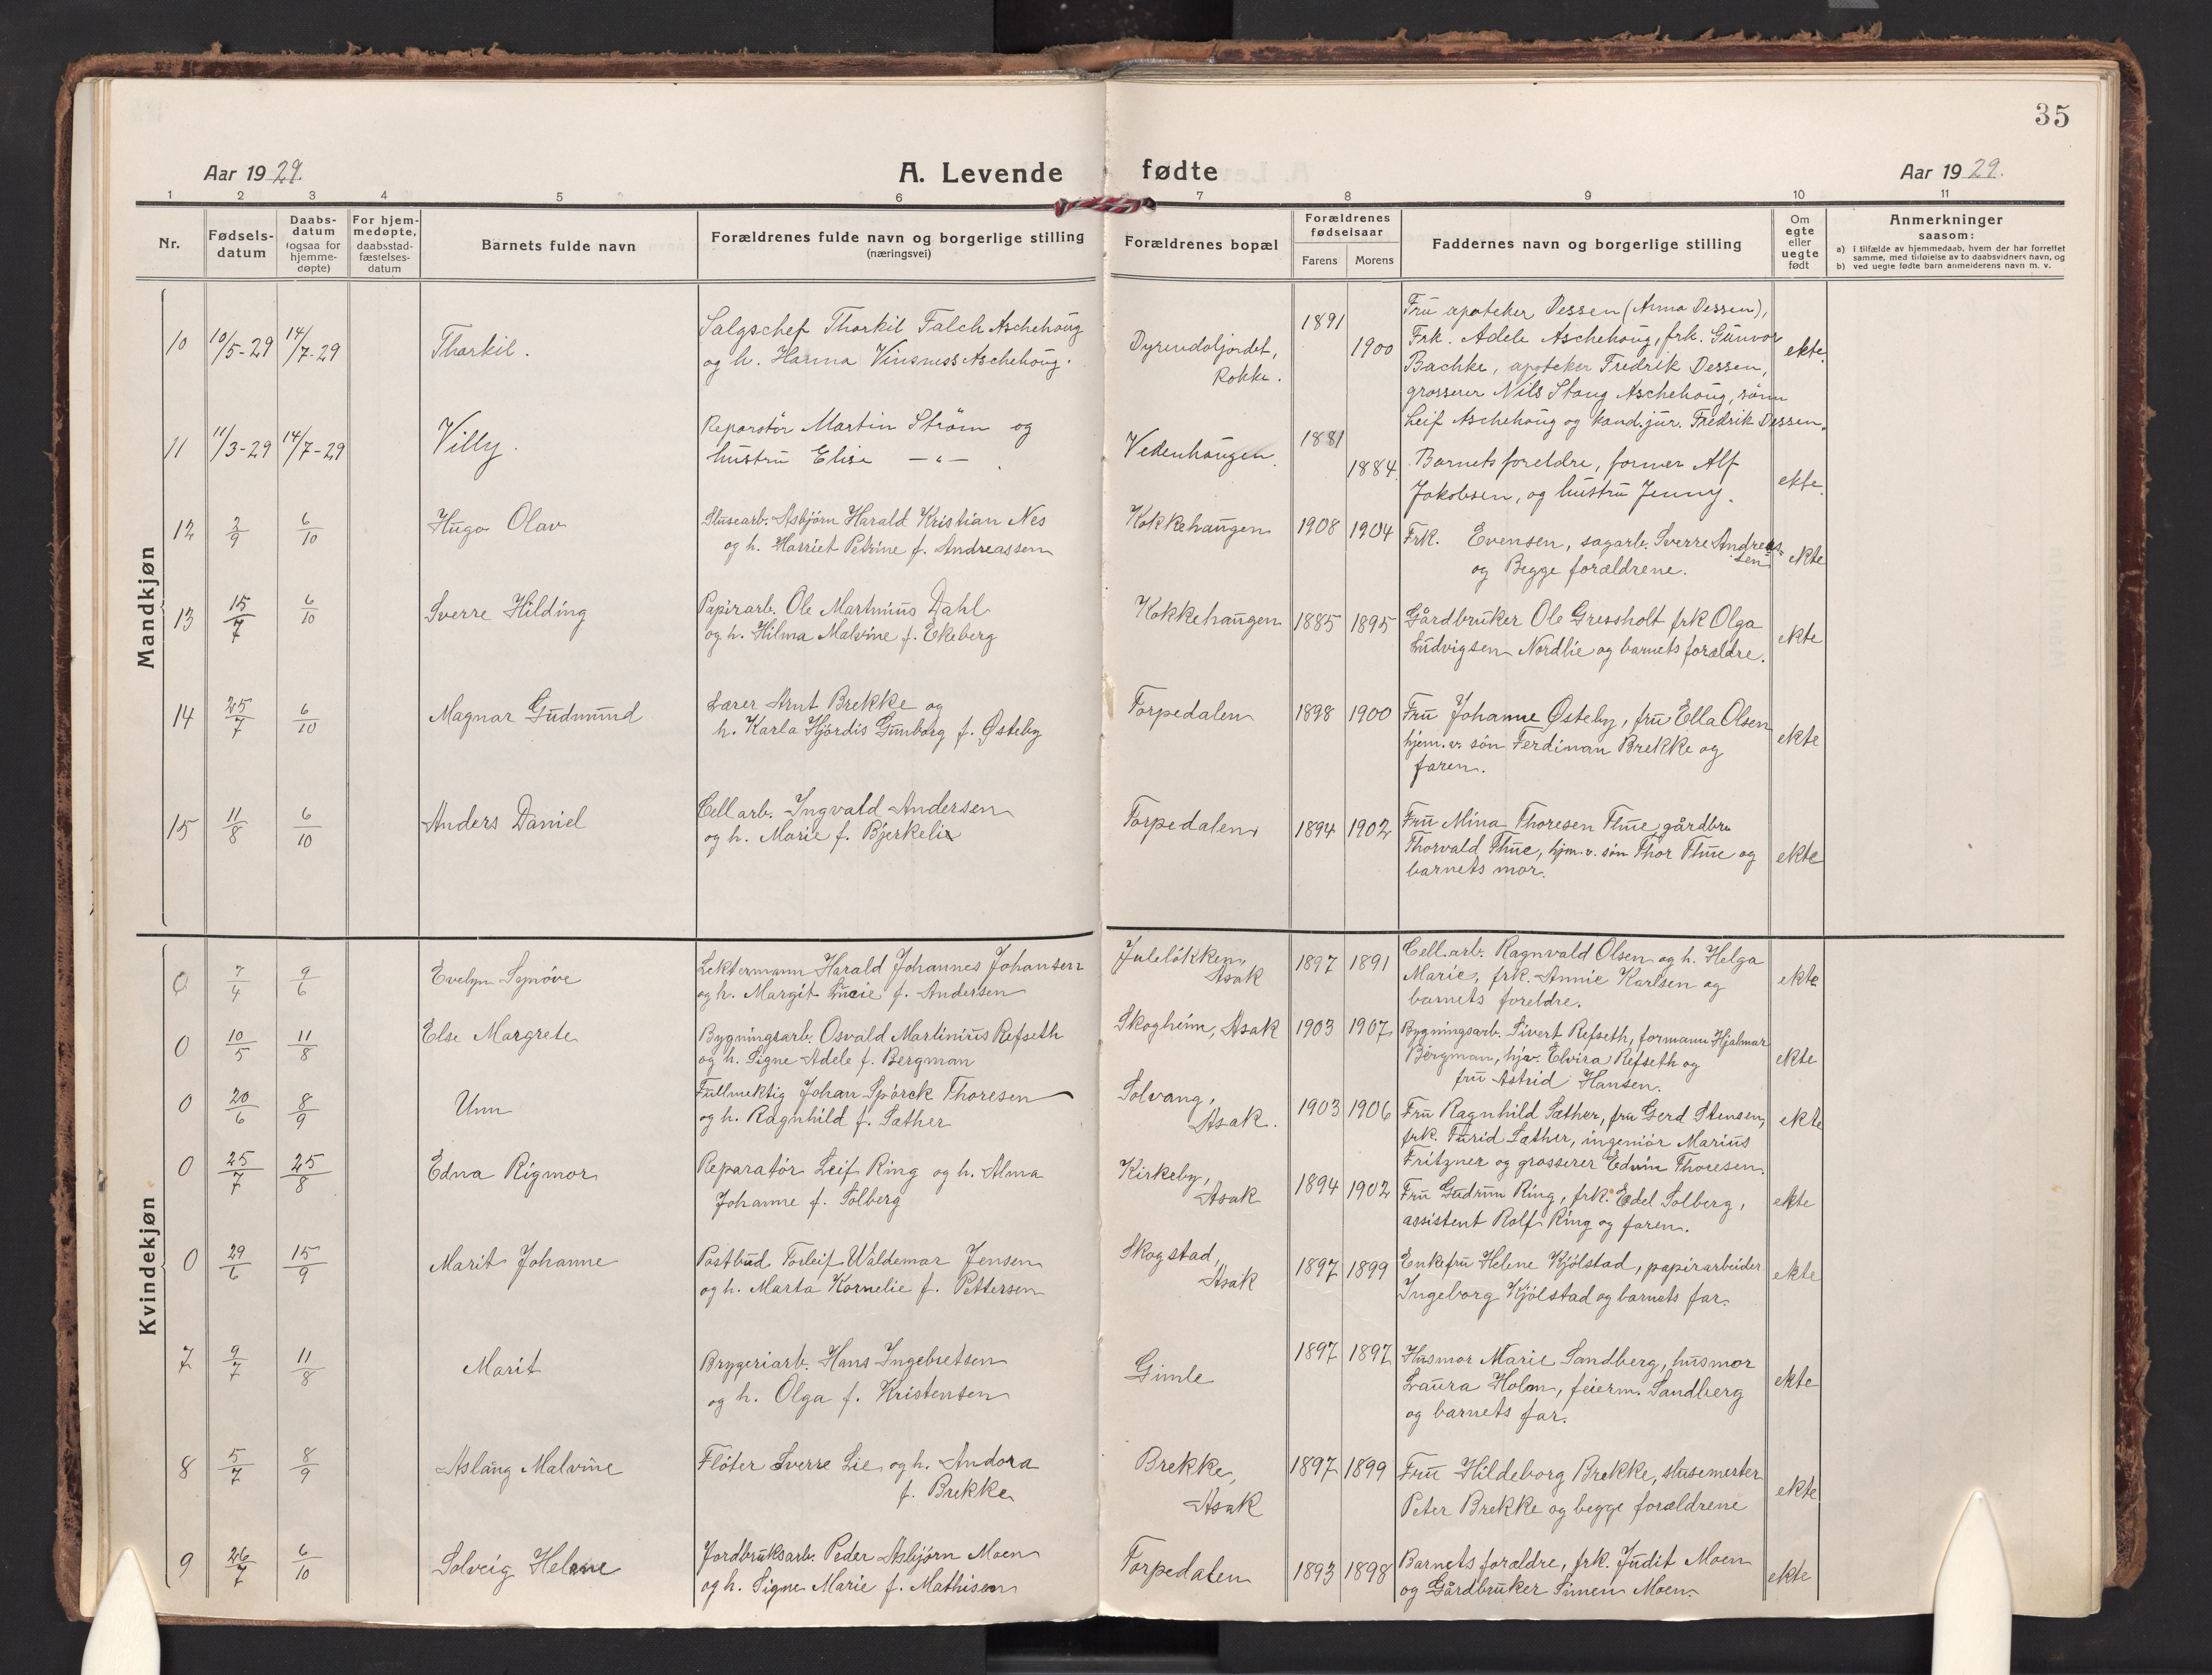 35
Aar 1929.
A. Levende fødte
Aar 1929.
1 2 3 4 5 6 7 8 9 10 11
Nr.
Fødsels-
datum
Daabs-
datum
(ogsaa for
hjemme-
døpte)
For hjem-
medøpte,
daabsstad-
fæstelses-
datum
Barnets fulde navn
Forældrenes fulde navn og borgerlige stilling
(næringsvei)
Forældrenes bopæl
Forældrenes
fødselsaar
Farens Morens
Faddernes navn og borgerlige stilling
Om
egte
eller
uegte
født
Anmerkninger
saasom:
a) i tilfælde av hjemmedaab, hvem der har forrettet
samme, med tilføielse av to daabsvidners navn, og
b) ved uegte fødte barn anmelderens navn m. v.
Mandkjøn
10 10/5-29 14/7-29 Thorkil.
Salgschef Thorkil Falch Aschehoug
og h. Hanna Vinsness Aschehoug.
Rokke.
1891 1900
Fru apoteker Dessen (Anna Dessen),
Frk. Adele Aschehoug, frk. Gunvor
Bachke, apoteker Fredrik Dessen,
grosserer Nils Stang Aschehoug, sønn
Leif Aschehoug og kand.jur. Fredrik Dessen.
ekte.
11 11/3-29 14/7-29 Villy.
Reparatør Martin Strøm og
hustru Elise —"—.
Vedenhaugen.
1881 1884
Barnets foreldre, former Alf
Jakobsen, og hustru Jenny.
ekte.
12 2/9 6/10 Hugo Olav
Slusearb. Asbjørn Harald Kristian Nes
og h. Harriet Petrine f. Andreassen
Kokkehaugen 1908 1904
Frk. Evensen, sagarb. Sverre Andreas-
sen
og Begge forældrene.
ekte
13 15/7 6/10 Sverre Hilding
Papirarb. Ole Martinius Dahl
og h. Hilma Malvine f. Ekeberg
Kokkehaugen 1885 1895
Gårdbruker Ole Gressholt frk Olga
Ludvigsen Nordlie og barnets forældre.
ekte
14 25/7 6/10 Magnar Gudmund
Lærer Arnt Brekke og
h. Karla Hjørdis Gunborg f. Østeby
Torpedalen 1898 1900
Fru Johanne Østeby, fru Ella Olsen
hjem.v. søn Ferdinan Brekke og
faren.
ekte
15 11/8 6/10 Anders Daniel
Cell arb. Ingvald Andersen
og h. Marie f. Bjerkelie
Torpedalen 1894 1902
Fru Mina Thoresen Thue gårdbr.
Thorvald Thue, hjm.v. søn Thor Thue og
barnets mor.
ekte
Kvindekjøn
0 7/4 9/6 Evelyn Synøve
Lektermann Harald Johannes Johansen
og h. Margit Lucie f. Andersen
Juleløkken,
Asak
1897 1891
Cell.arb. Ragnvald Olsen og h. Helga
Marie, frk. Annie Karlsen og
barnets foreldre.
ekte
0 10/5 11/8 Else Margrete
Bygningsarb. Osvald Martinius Refseth
og h. Signe Adele f. Bergman
Skogheim, Asak 1903 1907
Bygningsarb. Sivert Refseth, formann Hjalmar
Bergman, hjv. Elvira Refseth og
fru Astrid Hansen.
ekte
0 20/6 8/9 Unn
Fullmektig Johan Spørck Thoresen
og h. Ragnhild f. Sæther
Solvang,
Asak.
1903 1906
Fru Ragnhild Sæther, fru Gerd Stensen,
frk. Turid Sæther, ingeniør Marius
Fritzner og grosserer Edvin Thoresen.
ekte
0 25/7 25/8 Edna Rigmor
Reparatør Leif Ring og h. Alma
Johanne f. Solberg
Kirkeby,
Asak
1894 1902
Fru Gudrun Ring, frk. Edel Solberg,
assistent Rolf Ring og faren.
ekte
0 29/6 15/9 Marit Johanne
Postbud Torleif Waldemar Jensen
og h. Marta Kornelie f. Pettersen
Skogstad,
Asak
1897 1899
Enkefru Helene Kjølstad, papirarbeider
Ingeborg Kjølstad og barnets far.
ekte
7 9/7 11/8 Marit
Bryggeriarb. Hans Ingebretsen
og h. Olga f. Kristensen
Gimle
1897 1897
Husmor Marie Sandberg, husmor
Laura Holm, feierm. Sandberg
og barnets far.
ekte
8 5/7 8/9 Aslaug Malvine
Fløter Sverre Lie og h. Andora
f. Brekke
Brekke,
Asak
1897 1899
Fru Hildeborg Brekke, slusemester
Peter Brekke og begge forældrene
ekte
9 26/7 6/10 Solveig Helene
Jordbruksarb. Peder Asbjørn Moen
og h. Signe Marie f. Mathisen
Torpedalen 1893 1898
Barnets forældre, frk. Judit Moen
og Gårdbruker Simen Moen.
ekte